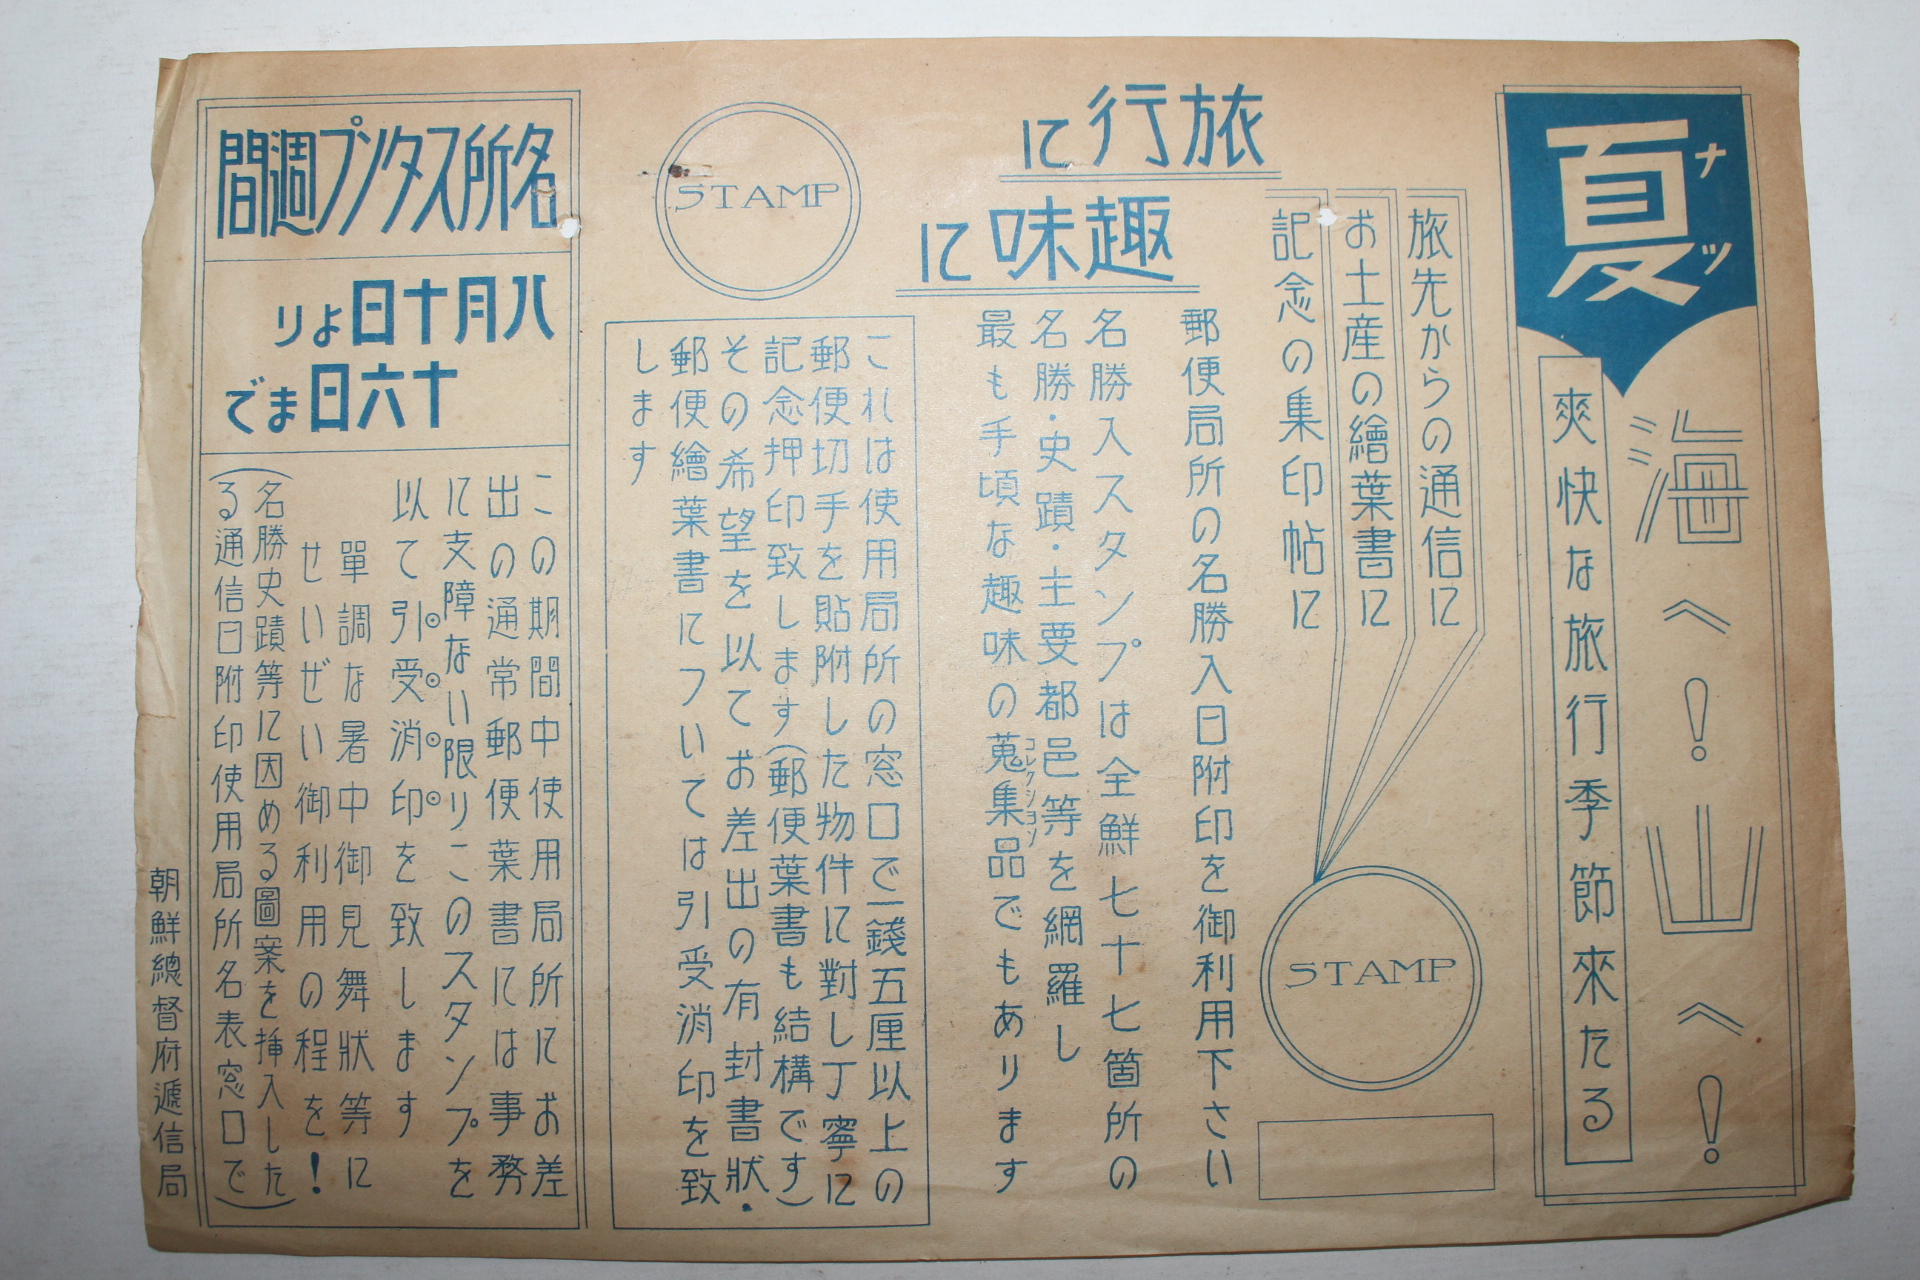 夏
ナツ
海へ!山へ!
爽快な旅行季節來たる
旅行に
趣味に
旅先からの通信に
お土産の繪葉書に
記念の集印帖に
STAMP
郵便局所の名勝入日附印を御利用下さい
名勝入スタンプは全鮮七十七箇所の
名勝・史蹟・主要都邑等を網羅し
最も手頃な趣味の蒐集品でもあります
コレクシヨン
STAMP
これは使用局所の窓口で一錢五厘以上の
郵便切手を貼附した物件に對し丁寧に
記念押印致します(郵便葉書も結構です)
その希望を以てお差出の有封書狀・
郵便繪葉書については引受消印を致
します
名所スタンプ週間
八月十日より
十六日まで
この期間中使用局所にお差
出の通常郵便葉書には事務
に支障ない限りこのスタンプを
以て引受消印を致します
單調な暑中御見舞狀等に
せいぜい御利用の程を!
(名勝史蹟等に因める圖案を挿入した
る通信日附印使用局所名表窓口で)
朝鮮總督府遞信局